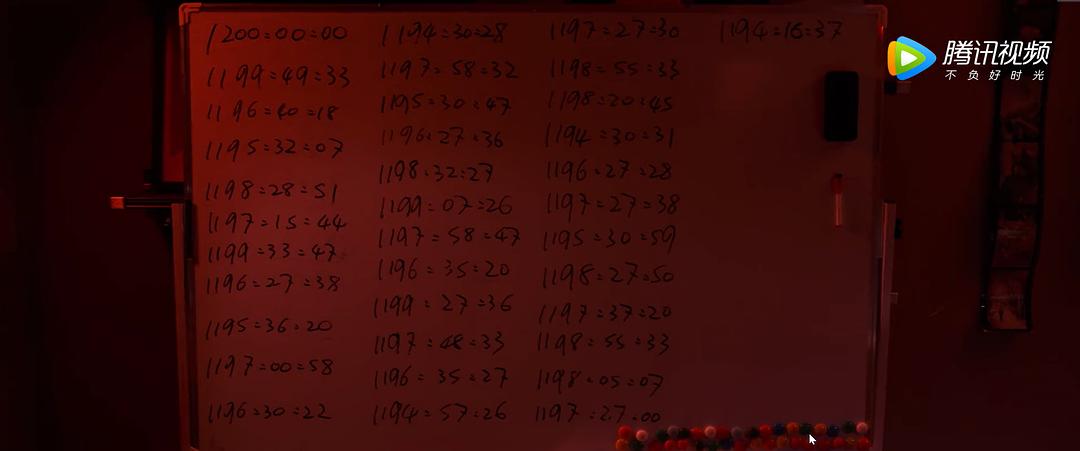 1200:00:00
1199:49:33
1196:40:18
1195:32:07
1198:28:51
1197:15:44
1199:33:47
1196:27:38
1195:36:20
1197:00:58
1196:30:22
1194:30:28
1197:58:32
1195:30:47
1196:27:36
1198:32:27
1199:07:26
1197:58:47
1196:35:20
1199:27:36
1197:48:33
1196:35:27
1194:57:26
1197:27:30
1198:55:33
1198:20:45
1194:30:31
1196:27:28
1197:27:38
1195:30:59
1198:27:50
1197:37:20
1198:55:33
1198:05:07
1197:27:00
1194:16:37
腾讯视频
不负好时光